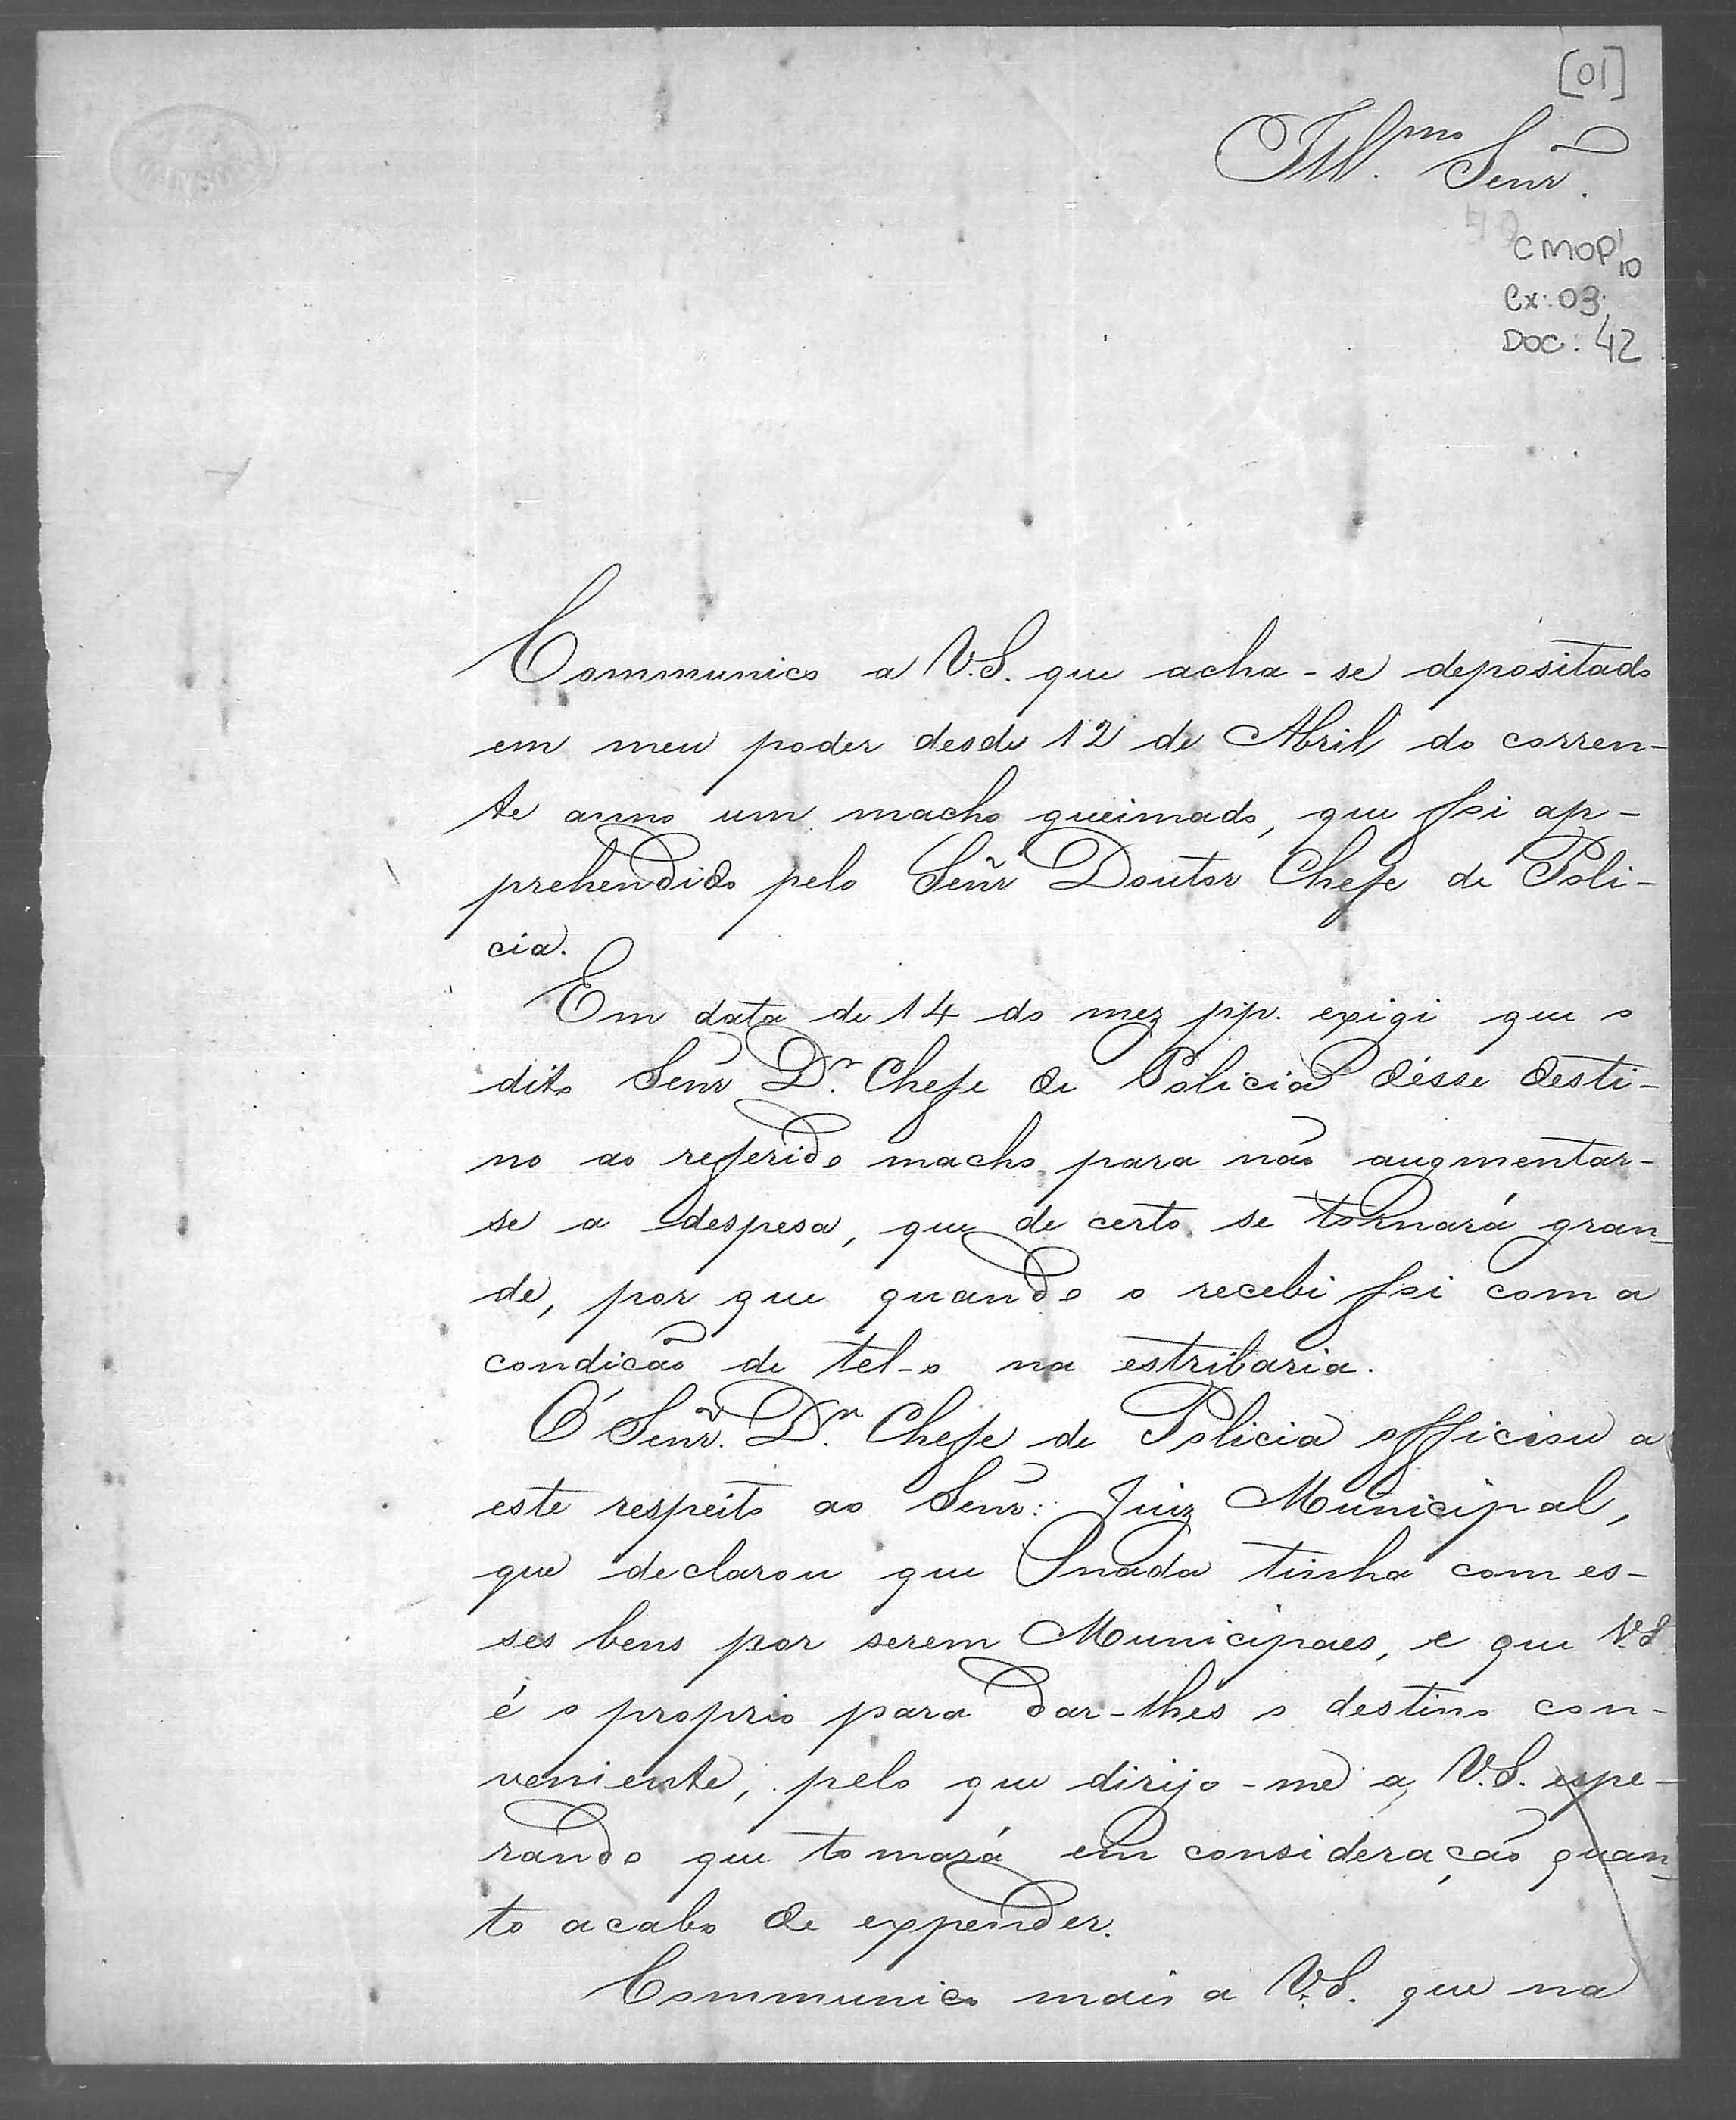 [01]
Ill.mo Senr.
CMOP 10
Cx: 03
DOC: 42
Communico a V.S. que acha-se depositado
em meu poder desde 12 de Abril do corren-
te anno um macho queimado, que foi ap-
prehendido pelo Señr Doutor Chefe de Poli-
cia.
Em data de 14 do mez pp. exigi que o
dito Senr D.r Chefe de Policia désse desti-
no ao referido macho para não augmentar-
se a despesa, que de certo se tornará gran-
de, por que quando o recebi foi com a
condicão de tel-o na estribaria.
O Senr. D.r Chefe de Policia officiou a
este respeito ao Senr. Juiz Municipal,
que declarou que nada tinha com es-
ses bens por serem Municipaes, e que V.S
é o proprio para dar-lhes o destino con-
veniente, pelo que dirijo-me a V.S. espe-
rando que tomará em consideração quan-
to acabo de expender.
Communico mais a V.S. que na